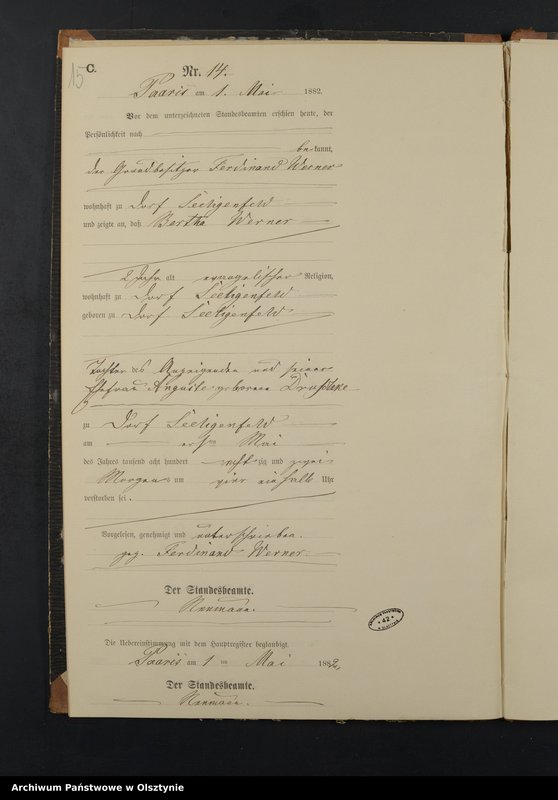 15
C.
Nr. 14.
Paaris am 1. Mai 1882.
Vor dem unterzeichneten Standesbeamten erschien heute, der
Persönlichkeit nach
be kannt,
der Grundbesitzer Ferdinand Werner
wohnhaft zu Dorf Seeligenfeld
und zeigte an, daß Bertha Werner
2 Jahr alt evangelischer Religion,
wohnhaft zu Dorf Seeligenfeld
geboren zu Dorf Seeligenfeld
Tochter des Anzeigenden und seiner
Ehefrau Auguste geborene
zu Dorf Seeligenfeld
am ersten Mai
des Jahres tausend acht hundert achtzig und zwei
Morgens um vier einhalb Uhr
verstorben sei.
Vorgelesen, genehmigt und unterschrieben.
gez. Ferdinand Werner
Der Standesbeamte.
Neumann.
Die Uebereinstimmung mit dem Hauptregister beglaubigt.
Paaris am 1 ten Mai 1882.
Der Standesbeamte.
Neumann.
* 42 *
Archiwum Państwowe w Olsztynie